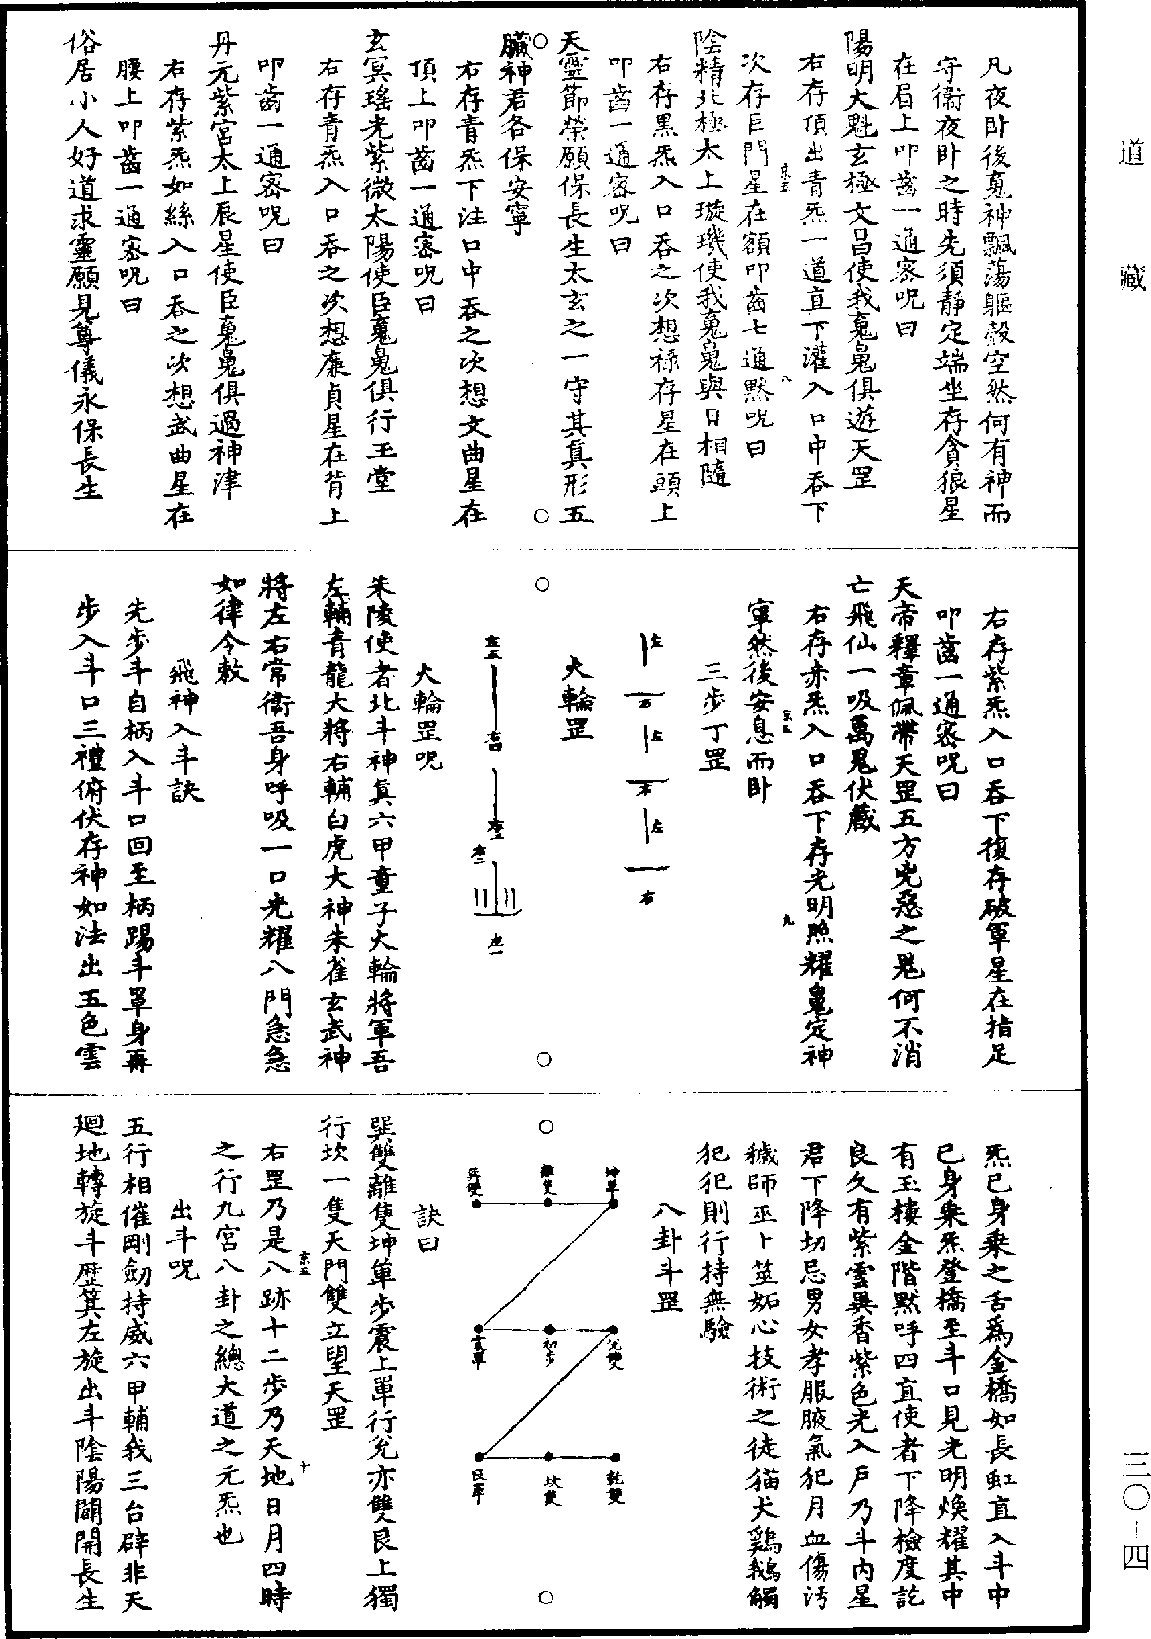 道藏
三〇—四
凡夜卧後䰟神飄蕩軀殼空然何有神而
守衛夜卧之時先須靜定端坐存貪狼星
在眉上叩齒一通密呪曰
陽明大魁玄極文昌使我䰟䰟俱遊天罡
右存頂出青炁一道直下灌入口中吞下
次存巨門星在額叩齒七通黙呪曰
陰精北極太上璇璣使我䰟䰟與日相隨
右存黑炁入口吞之次想祿存星在頭上
叩齒一通密呪曰
天靈節榮願保長生太玄之一守其眞形五
臟神君各保安寧
右存青炁下注口中吞之次想文曲星在
頂上叩齒一通密呪曰
玄冥瑤光紫微太陽使臣䰟䰟俱行玉堂
右存青炁入口吞之次想廉貞星在背上
叩齒一通密呪曰
丹元紫宮太上辰星使臣䰟䰟俱過神津
右存紫炁如絲入口吞之次想武曲星在
腰上叩齒一通密呪曰
俗居小人好道求靈願見尊儀永保長生
右存紫炁入口吞下復存破軍星在指足
叩齒一通密呪曰
天帝釋章佩帶天罡五方兇惡之鬼何不消
亡飛仙一吸萬鬼伏藏
右存赤炁入口吞下存光明照耀䰟定神
寧然後安息而卧
三步丁罡
左
右
左
右
左
右
大輪罡
大輪罡呪
朱陵使者北斗神真六甲童子大輪將軍吾
左輔青龍大將右輔白虎大神朱雀玄武神
將左右常衛吾身呼吸一口光耀八門急急
如律令敕
飛神入斗訣
先步斗自柄入斗口回至柄踢斗罩身再
步入斗口三禮俯伏存神如法出五色雲
炁已身乗之舌爲金橋如長虹直入斗中
已身乗炁登橋至斗口見光明煥耀其中
有玉樓金階黙呼四直使者下降檢度訖
良久有紫雲異香紫色光入戶乃斗內星
君下降切忌男女孝服腋氣犯月血傷汚
穢師巫卜筮妬心技術之徒猫犬鷄鵝觸
犯犯則行持無驗
八卦斗罡
坤單
離隻
巽雙
兌雙
初步
震單
乾雙
坎隻
艮單
訣曰
巽雙離隻坤單步震上單行兌亦雙艮上獨
行坎一隻天門雙立望天罡
右罡乃是八跡十二步乃天地日月四時
之行九宮八卦之總大道之元炁也
出斗呪
五行相催剛劒持威六甲輔我三台辟非天
廻地轉旋斗歷箕左旋出斗陰陽闢開長生